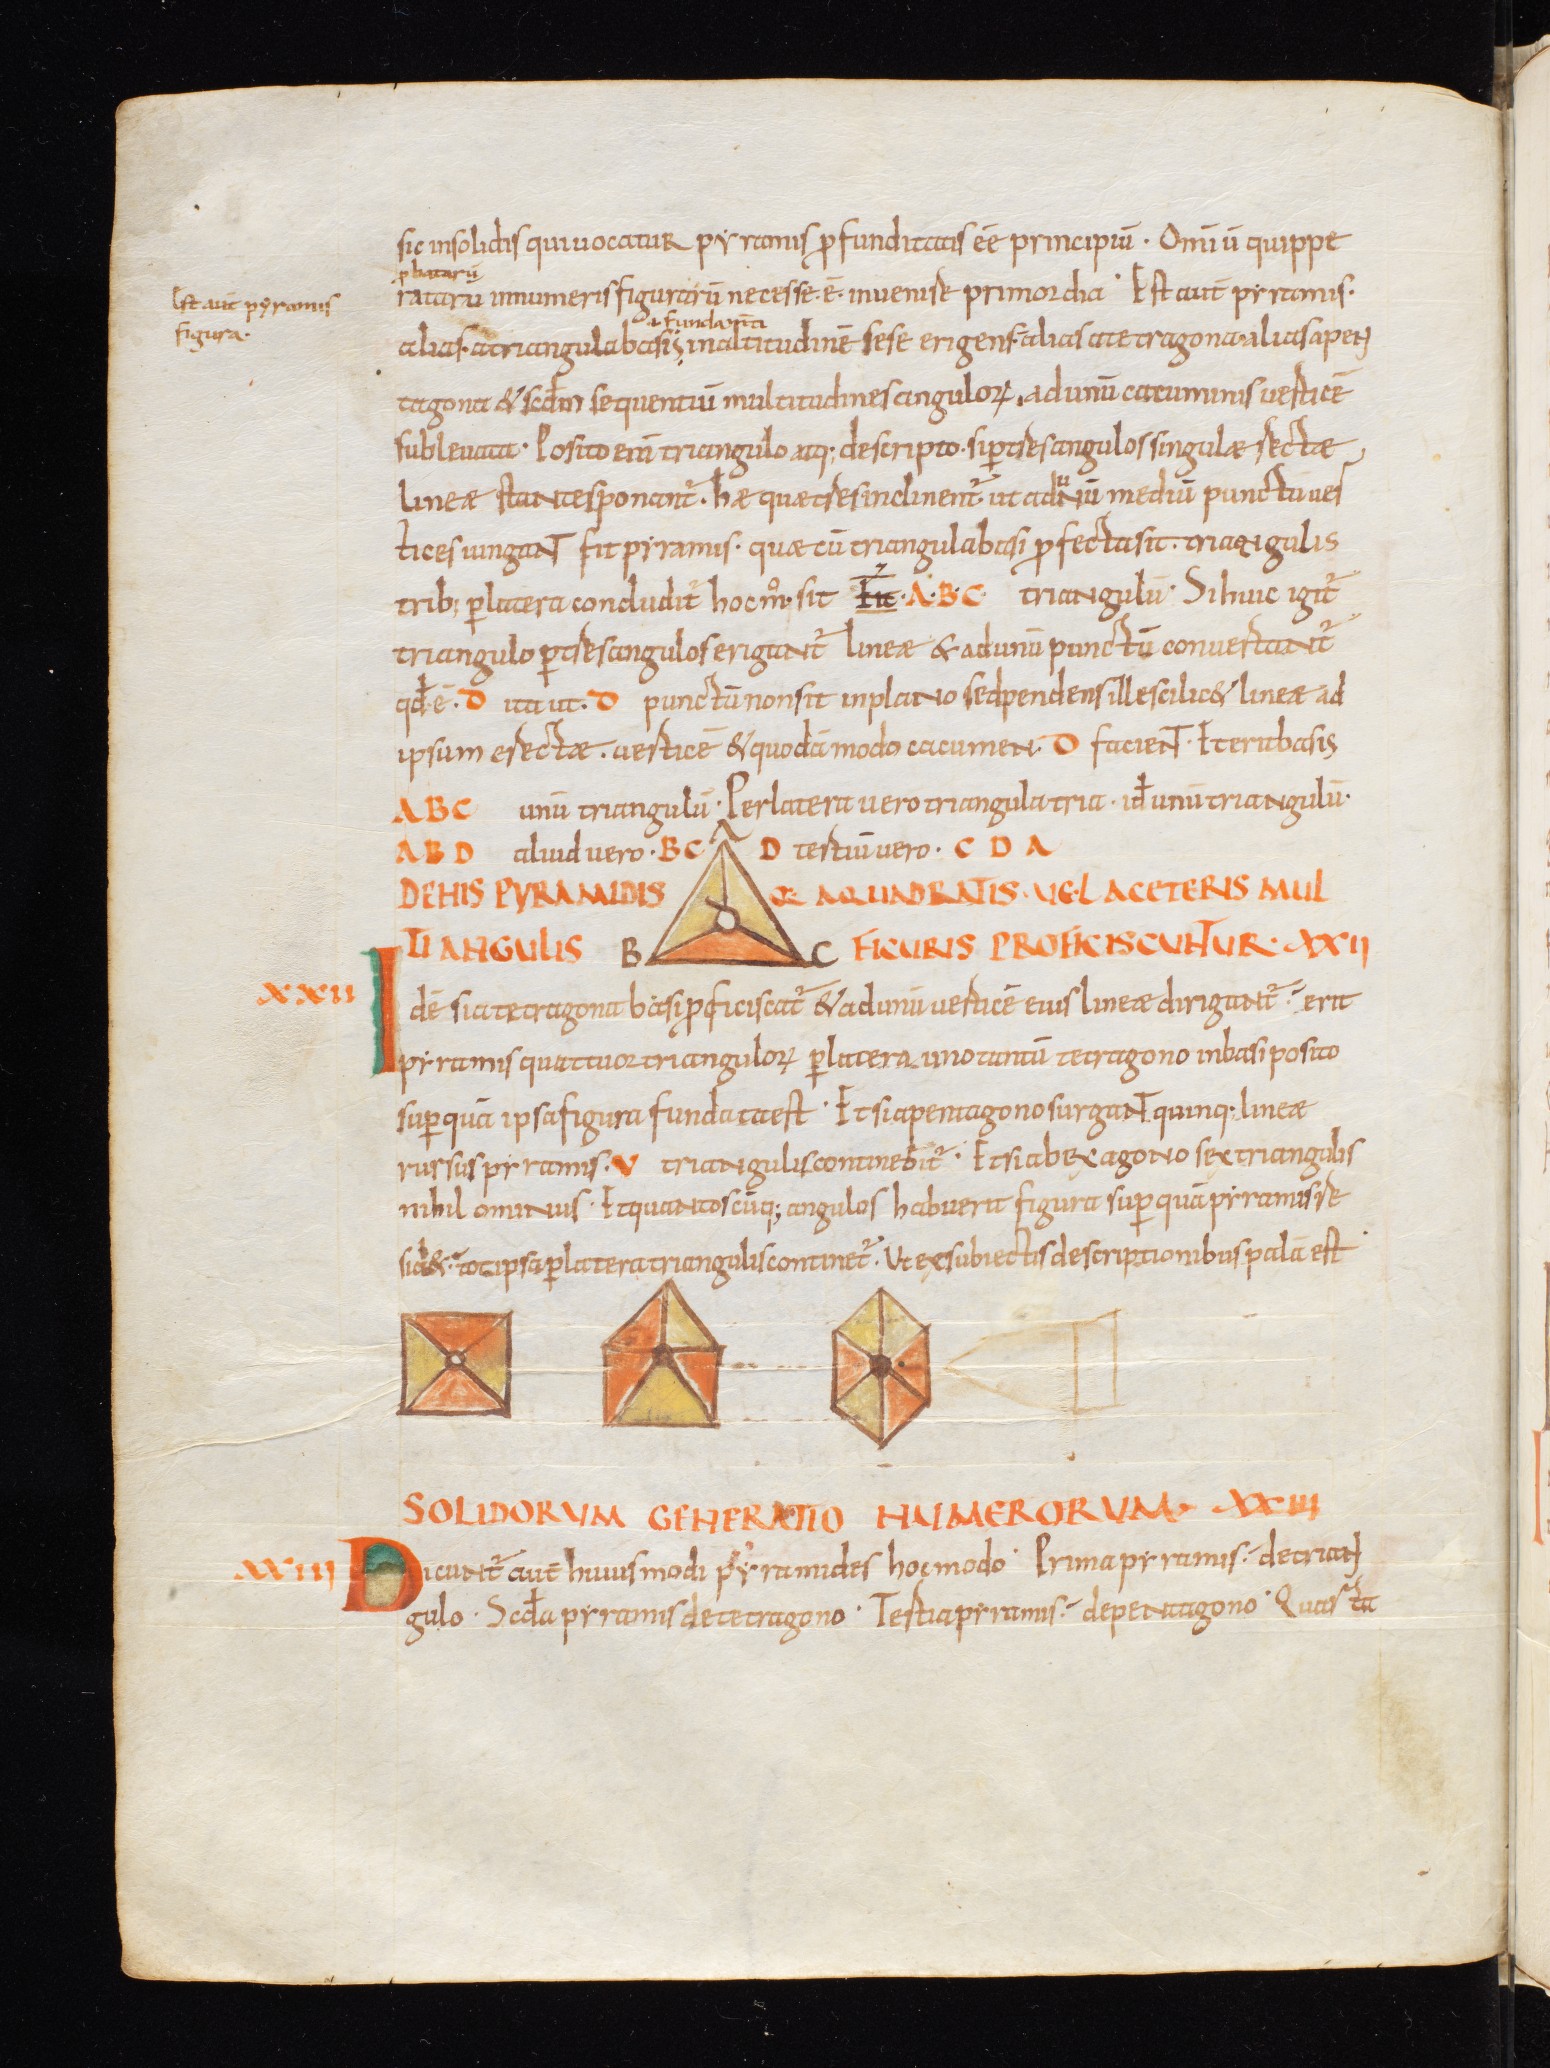 sic insolidis qui uocatur pyramis ꝓfunditatis eē principiū · Omīū quippe
ꝓbatarū
ratarū innumeris figurarū necesse · ē · inuenire primordia · Est aut̄ pyramis ·
Est aut̄ pyramis
figura ·
fundam̄ta
alias · atriangula basis inaltitudinē sese erigens · alias atetragona · alias apen
tagona & scd̄m sequentiū multitudines anguloꝝ · adunū cacuminis uerticē
subleuata · Posito eni triangulo atq; descripto · si ꝑ tres angulos singulæ rectæ
lineæ stantes ponant̄ · hæ quæ tres inclinent̄ ut ad unū mediū punctū uer
tices iungant fit pyramis · quæ cū triangula basi ꝓfecta sit · triangulis
trib; ꝑ latera concludit̄ hoc m̊ · sit · A · B · C · triangulū · Si huic igit̄
triangulo ꝑ tres angulos erigant̄ lineæ & ad unū punctū conuertant̄
qd̄ ē · D ita ut · D punctū non sit in plano sed pendens ille scilic& lineæ ad
ipsum erectæ · uerticē & quodā modo cacumen · D facient · Et erit basis
ABC unū triangulū · Per latera uero triangula tria · id̄ unū triangulū ·
ABD aliud uero · BC D tertiū uero · C D A
A
DE HIS PYRAMIDIS Q: AQUADRATIS · UEL A CETERIS MUL
TI ANGULIS B C FIGURIS PROFICISCUNTUR · XXII
XXII
Idē si atetragona basi ꝓficiscat̄ & ad unū uerticē eius lineæ dirigant̄ · erit
pyramis quattuor trianguloꝝ ꝑ latera uno tantū tetragono in basi posito
suꝑ quā ipsa figura fundata est · Et si apentagono surgant quinq; lineæ
rursus pyramis · V triangulis continebit̄ · Et si ab exagono sex triangulis
nihil ominus · Et quantoscūq; angulos habuerit figura suꝑ quā pyramis re
sid& · tot ipsa ꝑ latera triangulis continet̄ · Ut ex subiectis descriptionibus palā est
SOLIDORUM GENERATIO NUMERORUM · XXIII
XXIII
Dicunt̄ aut̄ huius modi pyramides hoc modo · Prima pyramis · de trian
gulo · Scd̄a pyramis de tetragono · Tertia pyramis · de pentagono · Quarta